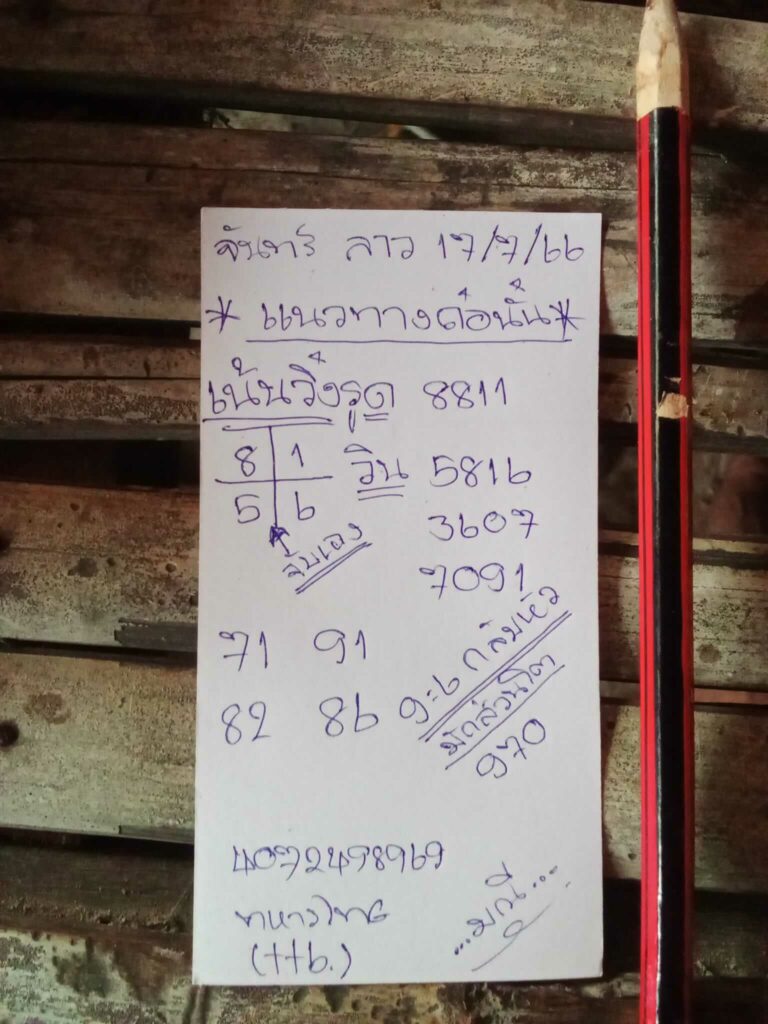 จันทร์ ลาว 17/7/66
* แนวทางต่อนั้น *
เน้นวิ่งรูด 8811
8 1
5 6
วิน 5816
3607
7091
จับเอง
71 91
82 86
9=6 กลับหัว
970
4072498969
ทหารไทย
(ttb.)
...มณี...